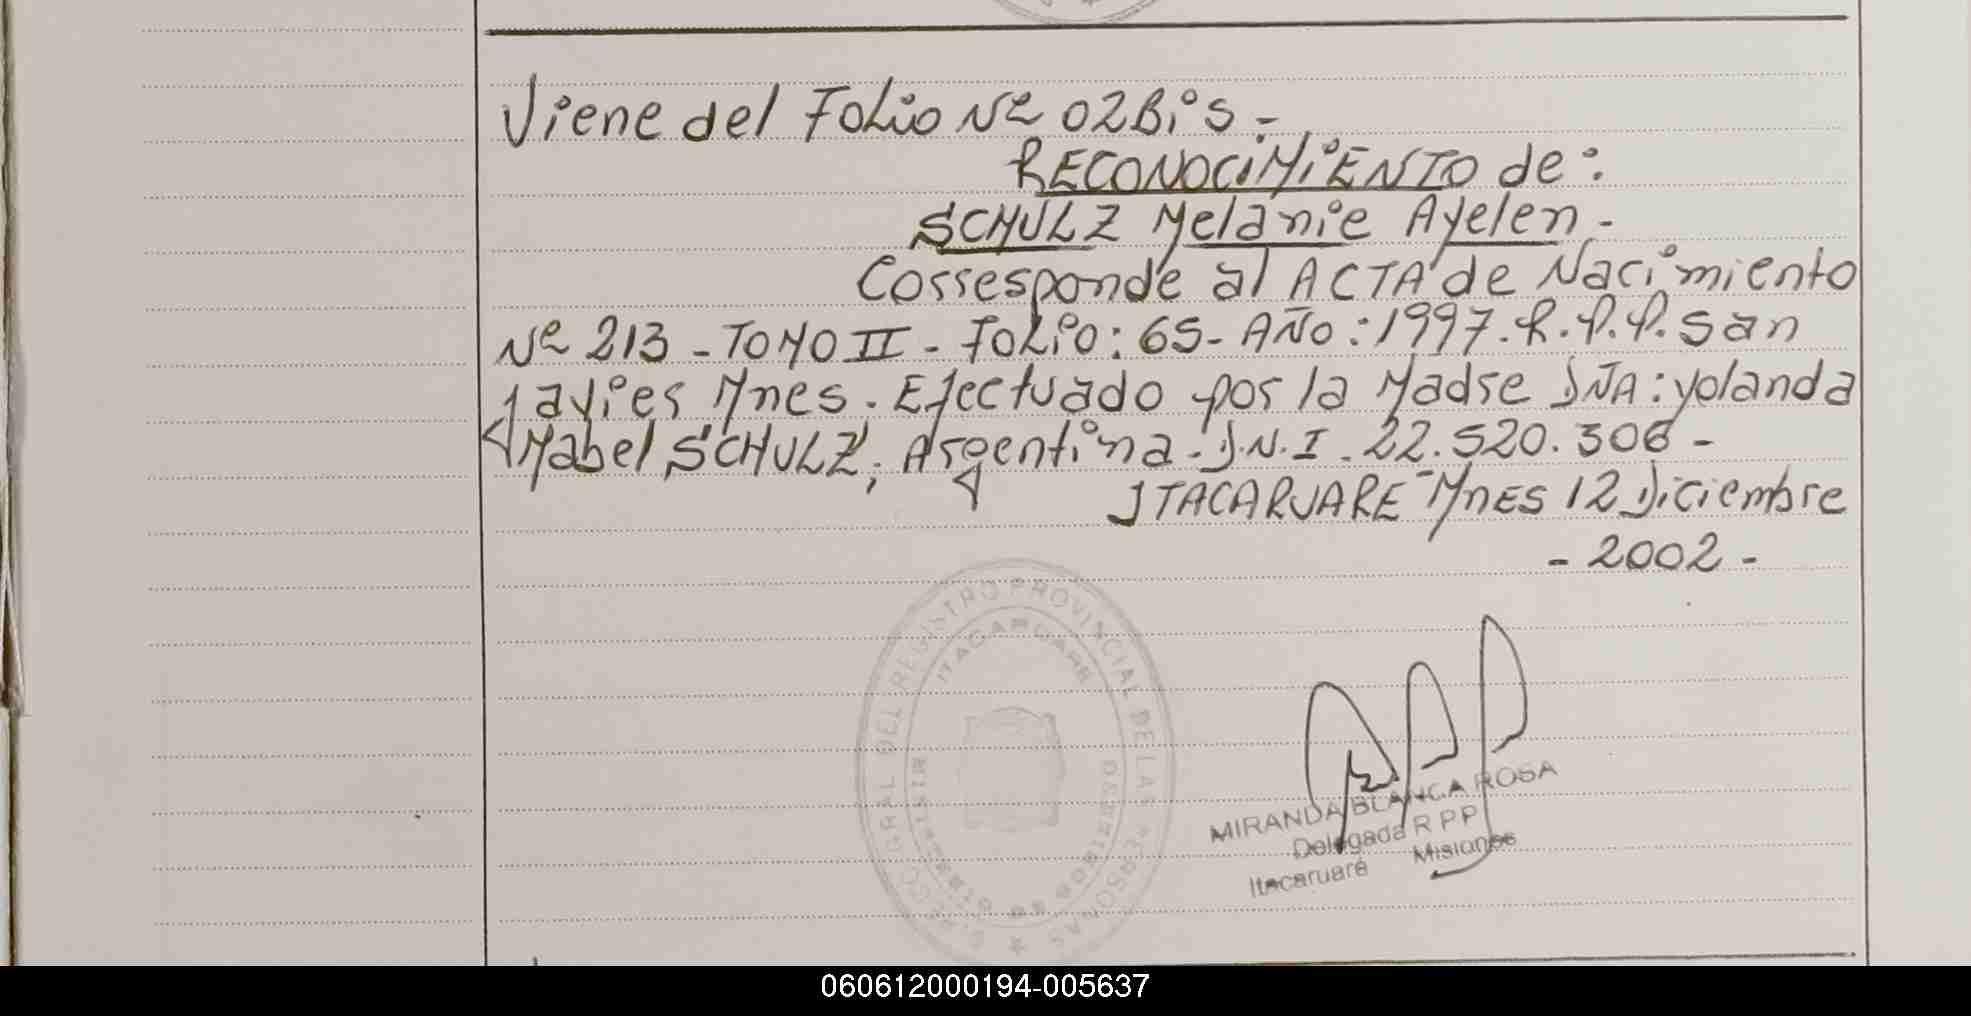 Viene del Folio Nº 02Bis -
RECONOCIMIENTO de:
SCHULZ Melanie Ayelen -
Corresponde al ACTA de Nacimiento
Nº 213 - TOMO II - Folio: 65 - AÑO: 1997. R.P.P. San
Javier Mnes. Efectuado por la Madre DÑA: Yolanda
Mabel SCHULZ, Argentina. D.N.I. 22.520.306 -
ITACARUARE - Mnes 12 Diciembre
- 2002 -
REGISTRO PROVINCIAL DE LAS PERSONAS
ITACARUARE
MIRANDA BLANCA ROSA
Delegada R P P
Itacaruaré Misiones
060612000194-005637